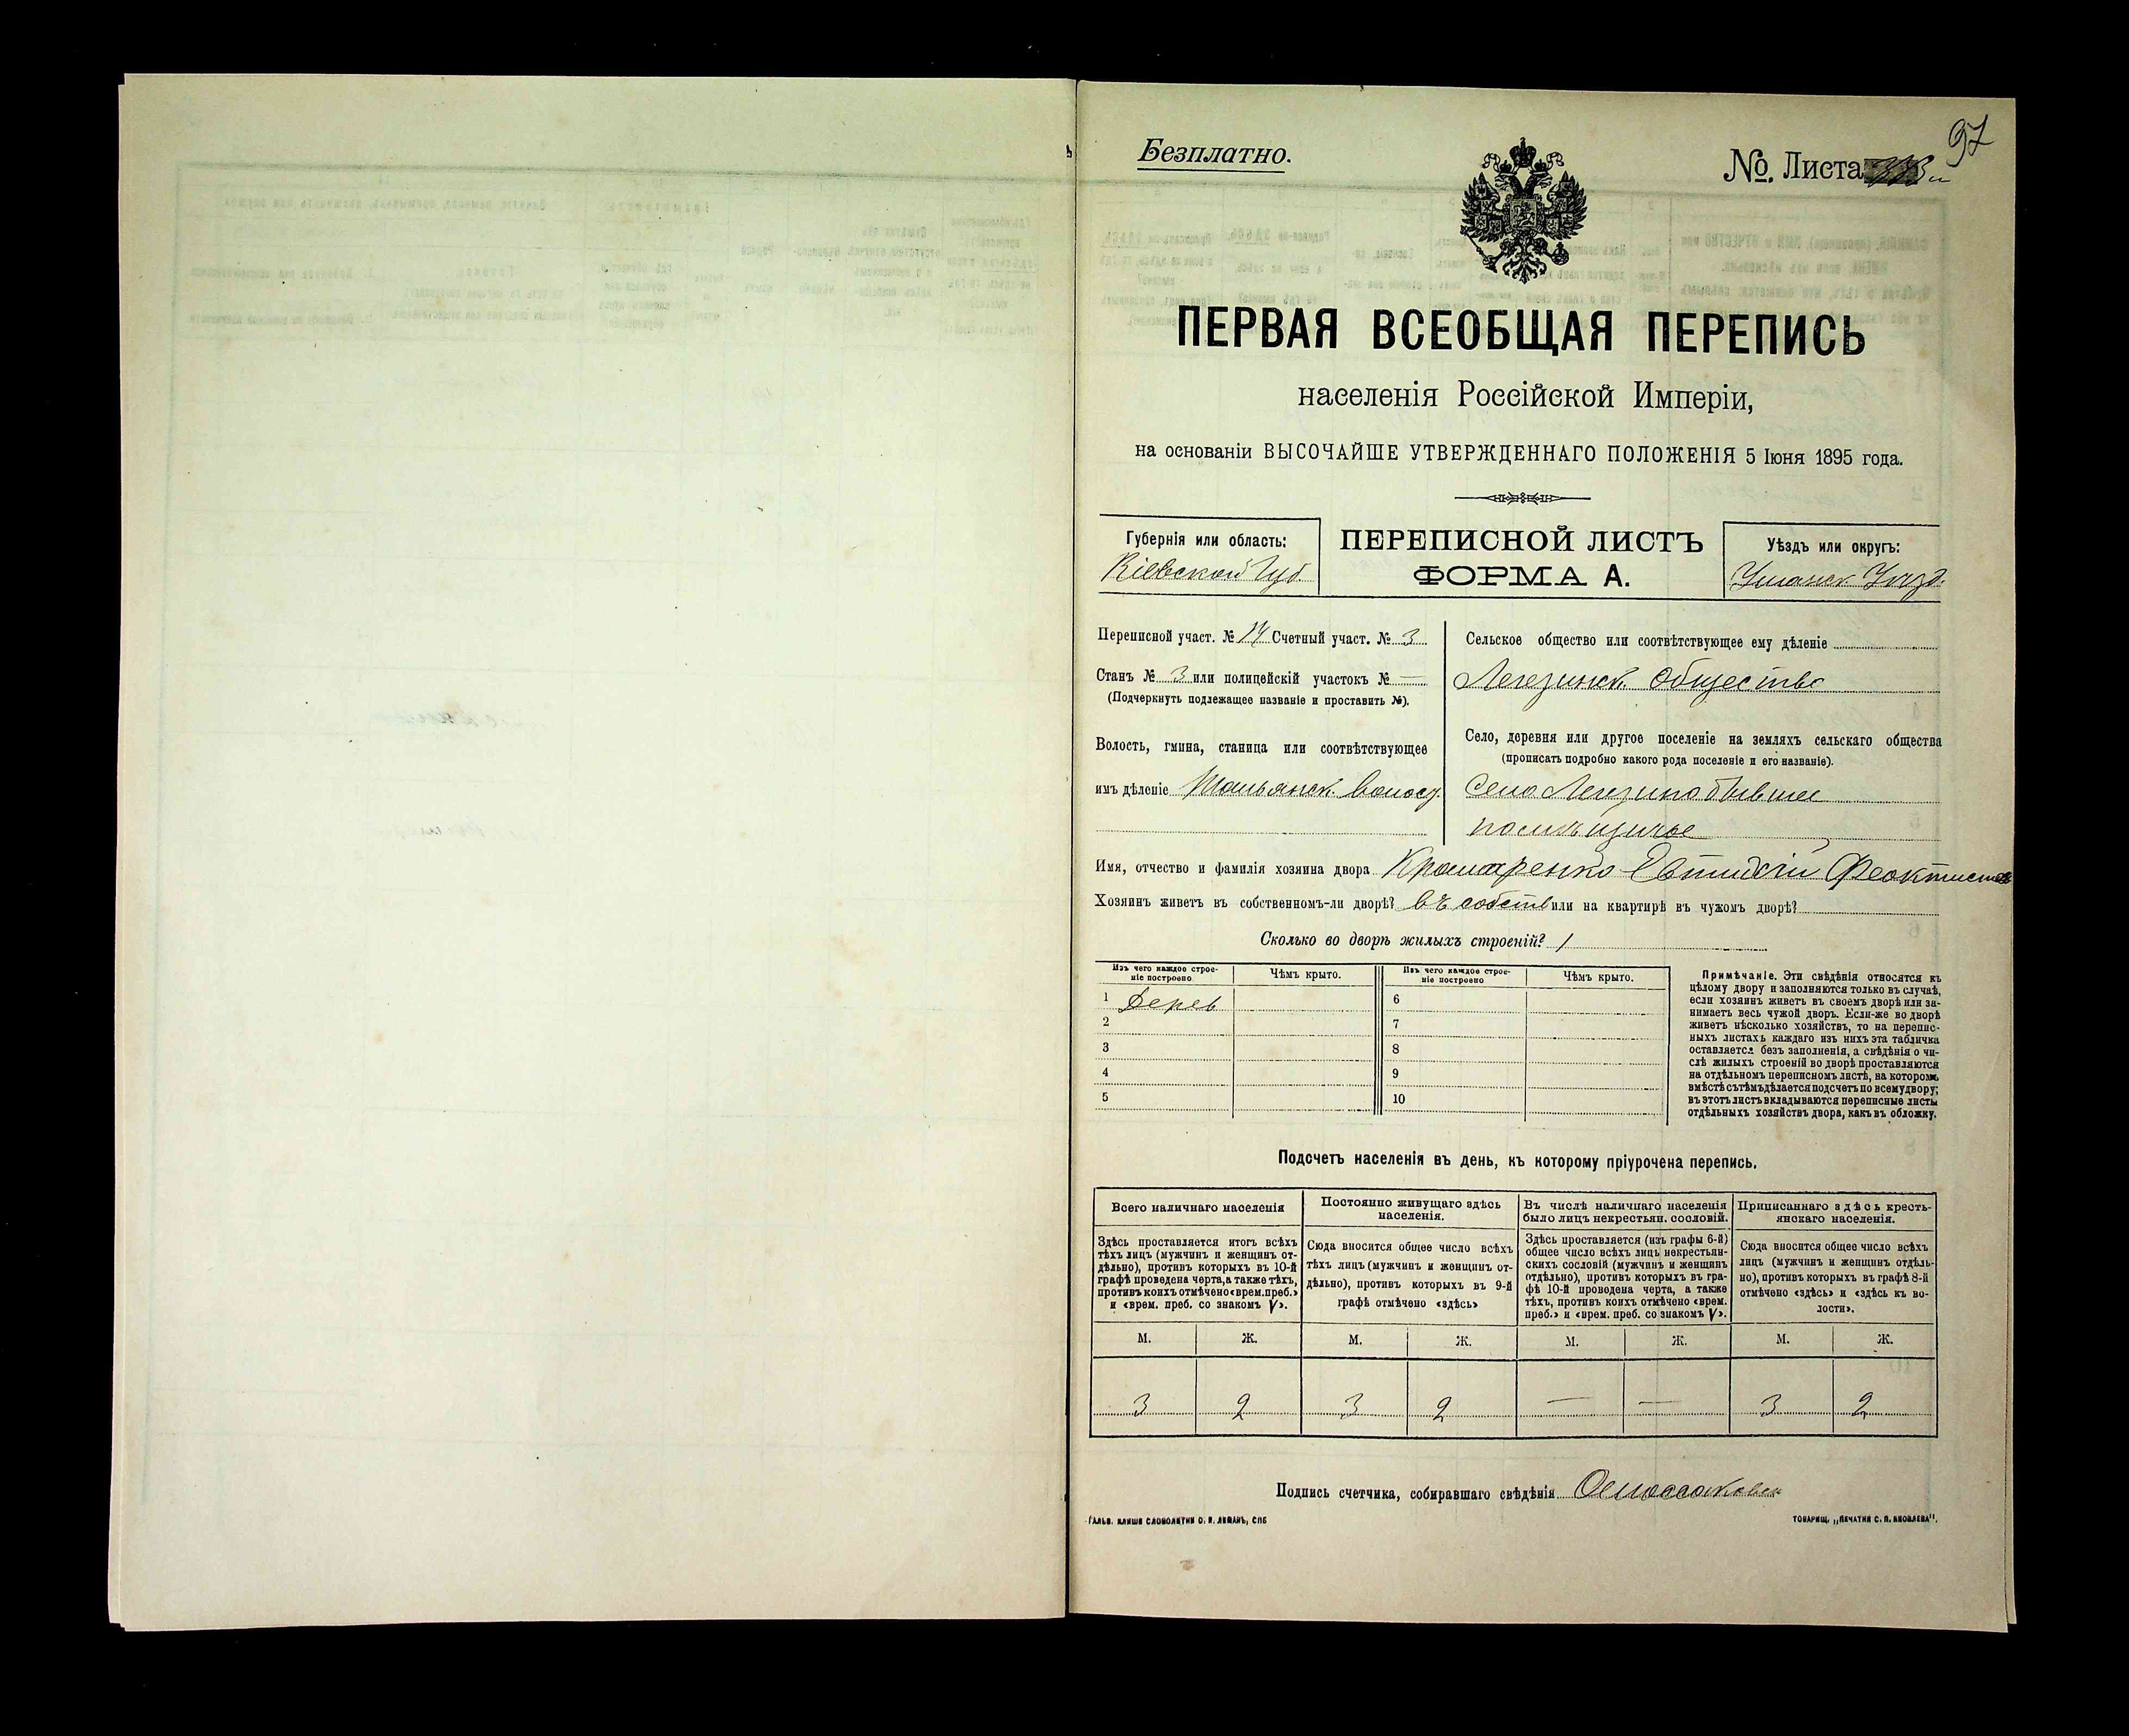 97
Безплатно.
№. Листа
ПЕРВАЯ ВСЕОБЩАЯ ПЕРЕПИСЬ
населенія Россійской Имперіи,
на основаніи ВЫСОЧАЙШЕ УТВЕРЖДЕННАГО ПОЛОЖЕНІЯ 5 Іюня 1895 года.
Губернія или область:
Кіевской Губ.
ПЕРЕПИСНОЙ ЛИСТЪ
ФОРМА А.
Уѣздъ или округъ:
Уманск Уѣзд.
Переписной участ. № 14 Счетный участ. № 3
Станъ № 3 или полицейскій участокъ № —
(Подчеркнуть подлежащее названіе и проставить №).
Волость, гмина, станица или соотвѣтствующее
имъ дѣленіе Тальянск. Волост.
Сельское общество или соотвѣтствующее ему дѣленіе
Легезинск. Общество
Село, деревня или другое поселеніе на земляхъ сельскаго общества
(прописать подробно какого рода поселеніе и его названіе).
Село Легезино бывшее
помѣщичье
Имя, отчество и фамилія хозяина двора Крамаренко Евтихій Феоктистов
Хозяинъ живетъ въ собственномъ-ли дворѣ? въ собств или на квартирѣ въ чужомъ дворѣ?
Сколько во дворѣ жилыхъ строеній? 1
Изъ чего каждое строе-
ніе построено
Чѣмъ крыто.
Изъ чего каждое строе-
ніе построено
Чѣмъ крыто.
1 Дерев
2
3
4
5
6
7
8
9
10
Примѣчаніе. Эти свѣдѣнія относятся къ
цѣлому двору и заполняются только въ случаѣ,
если хозяинъ живетъ въ своемъ дворѣ или за-
нимаетъ весь чужой дворъ. Если-же во дворѣ
живетъ нѣсколько хозяйствъ, то на перепис-
ныхъ листахъ каждаго изъ нихъ эта табличка
оставляется безъ заполненія, а свѣдѣнія о чи-
слѣ жилыхъ строеній во дворѣ проставляются
на отдѣльномъ переписномъ листѣ, на которомъ
вмѣстѣ съ тѣмъ дѣлается подсчетъ по всему двору;
въ этотъ листъ вкладываются переписные листы
отдѣльныхъ хозяйствъ двора, какъ въ обложку.
Подсчетъ населенія въ день, къ которому пріурочена перепись.
Всего наличнаго населенія
Здѣсь проставляется итогъ всѣхъ
тѣхъ лицъ (мужчинъ и женщинъ от-
дѣльно), противъ которыхъ въ 10-й
графѣ проведена черта, а также тѣхъ,
противъ коихъ отмѣчено «врем. преб.»
и «врем. преб. со знакомъ V».
Постоянно живущаго здѣсь
населенія.
Сюда вносится общее число всѣхъ
тѣхъ лицъ (мужчинъ и женщинъ от-
дѣльно), противъ которыхъ въ 9-й
графѣ отмѣчено «здѣсь»
Въ числѣ наличнаго населенія
было лицъ некрестьян. сословій.
Здѣсь проставляется (изъ графы 6-й)
общее число всѣхъ лицъ некрестьян-
скихъ сословій (мужчинъ и женщинъ
отдѣльно), противъ которыхъ въ гра-
фѣ 10-й проведена черта, а также
тѣхъ, противъ коихъ отмѣчено «врем.
преб.» и «врем. преб. со знакомъ V».
Приписаннаго здѣсь кресть-
янскаго населенія.
Сюда вносится общее число всѣхъ
лицъ (мужчинъ и женщинъ отдѣль-
но), противъ которыхъ въ графѣ 8-й
отмѣчено «здѣсь» и «здѣсь къ во-
лости».
М. Ж. М. Ж. М. Ж. М. Ж.
3 2 3 2 — — 3 2
Подпись счетчика, собиравшаго свѣдѣнія
ГАЛЬВ. КЛИШЕ СЛОВОЛИТНИ О. И. ЛЕМАНЪ, СПБ
ТОВАРИЩ. „ПЕЧАТНЯ С. П. ЯКОВЛЕВА".